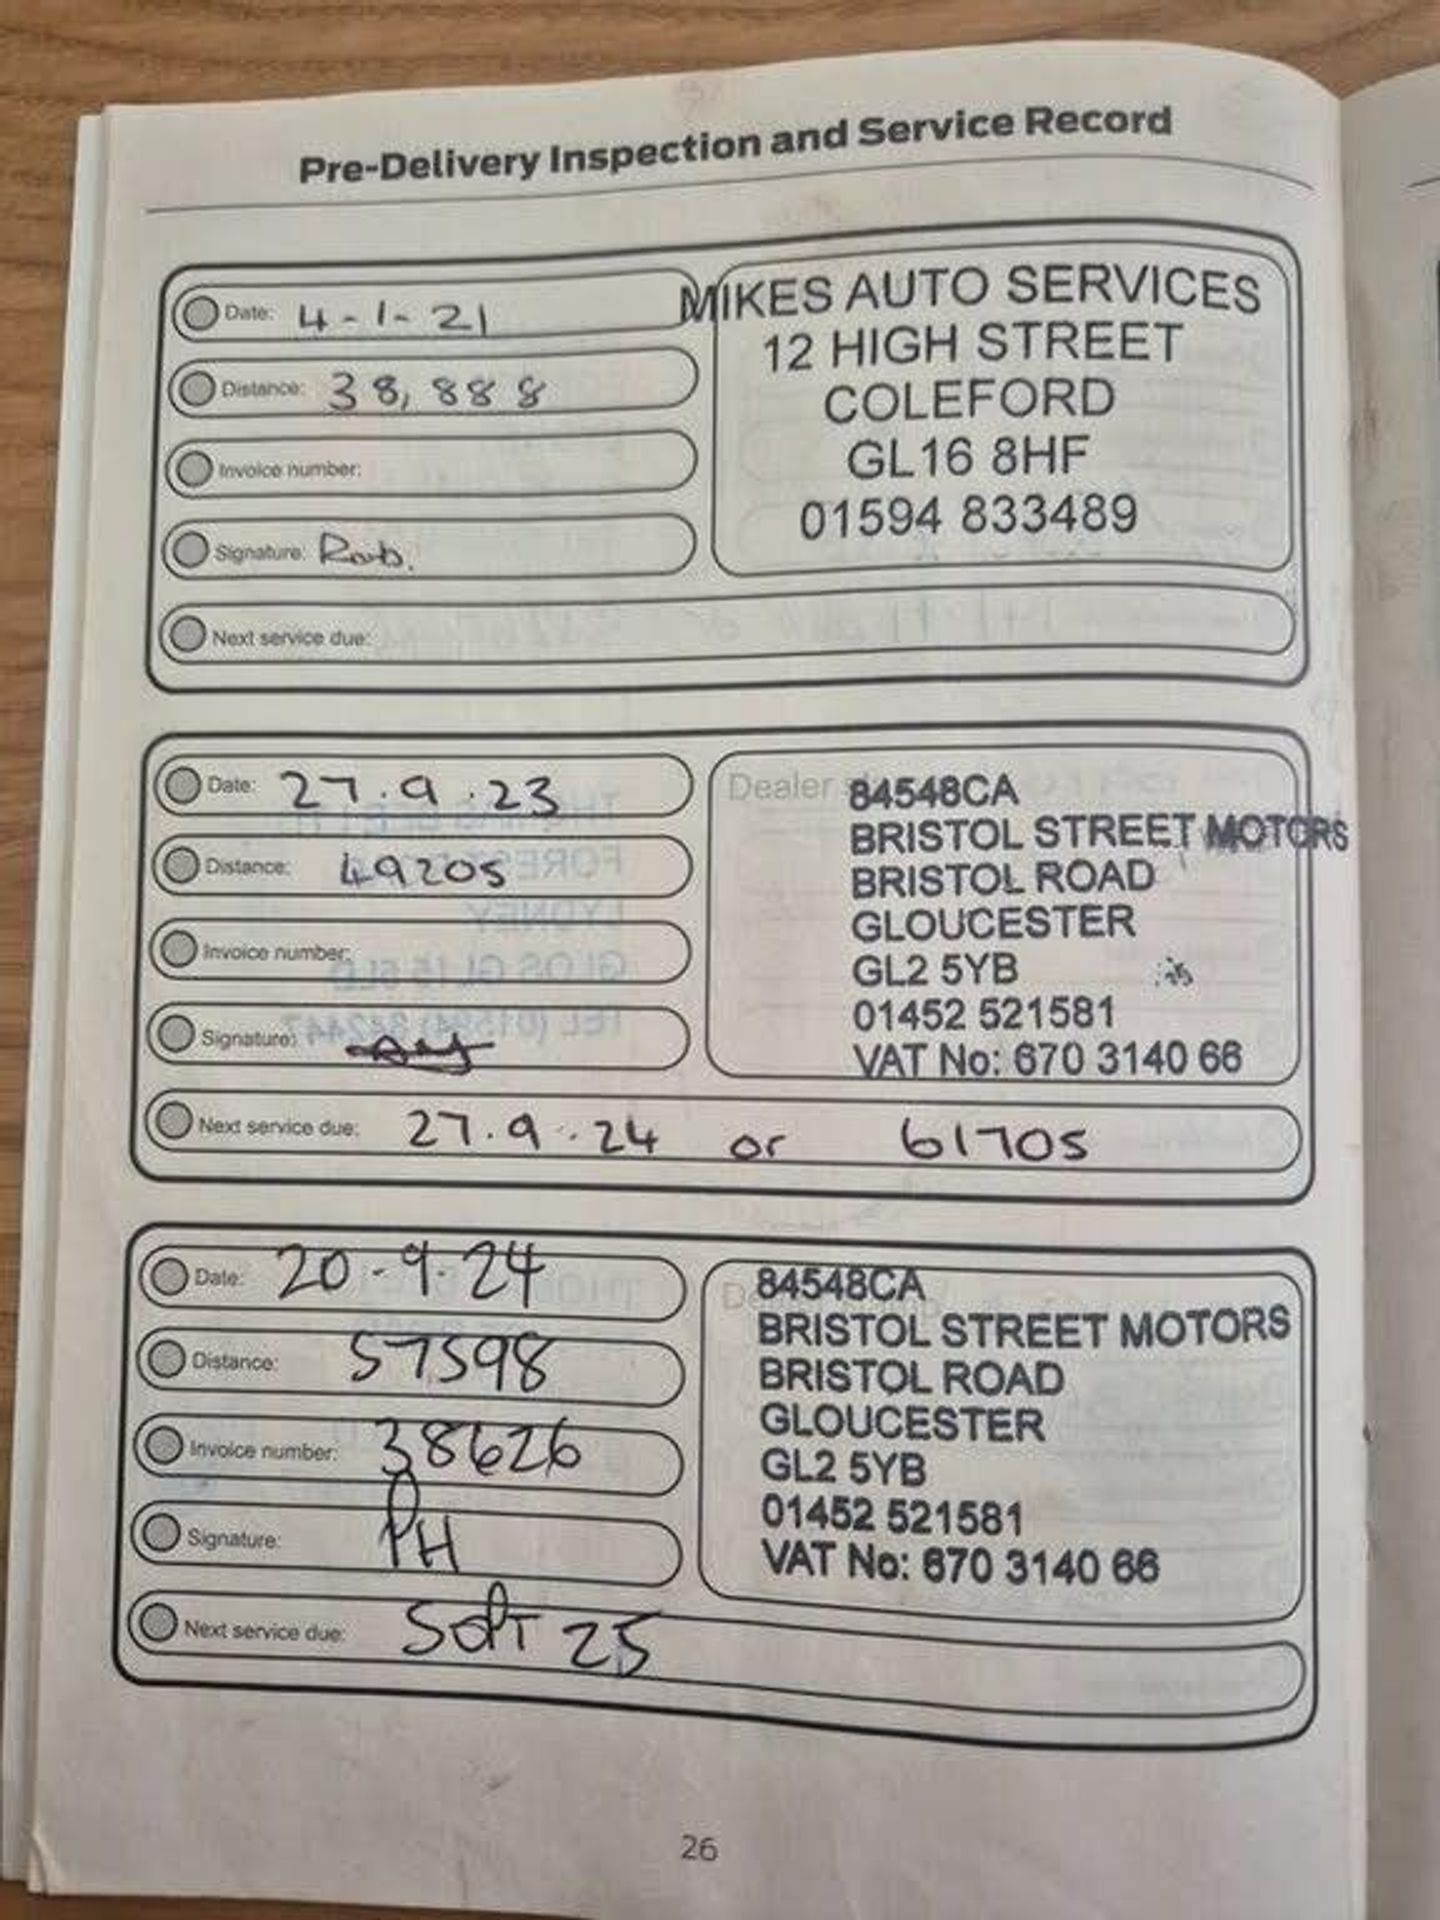 Pre-Delivery Inspection and Service Record
Date: 4-1-21
Distance: 38,888
Invoice number:
Signature:
Next service due:
MIKES AUTO SERVICES
12 HIGH STREET
COLEFORD
GL16 8HF
01594 833489
Date: 27.9.23
Distance: 49205
Invoice number:
Signature:
Next service due: 27.9.24 or 61705
Dealer
84548CA
BRISTOL STREET MOTORS
BRISTOL ROAD
GLOUCESTER
GL2 5YB
01452 521581
VAT No: 670 3140 66
Date: 20-9-24
Distance: 57598
Invoice number: 38626
Signature: PH
Next service due: SEPT 25
84548CA
BRISTOL STREET MOTORS
BRISTOL ROAD
GLOUCESTER
GL2 5YB
01452 521581
VAT No: 670 3140 66
26